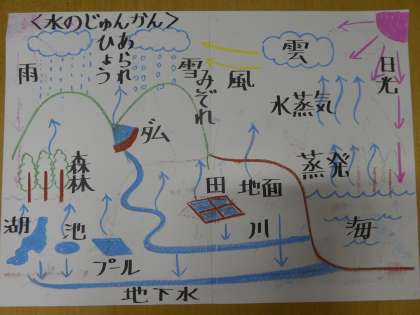 <水のじゅんかん>
雨
あられ
ひょう
雪
みぞれ
風
雲
日光
水蒸気
蒸発
ダム
森林
田
地面
湖
池
プール
川
海
地下水